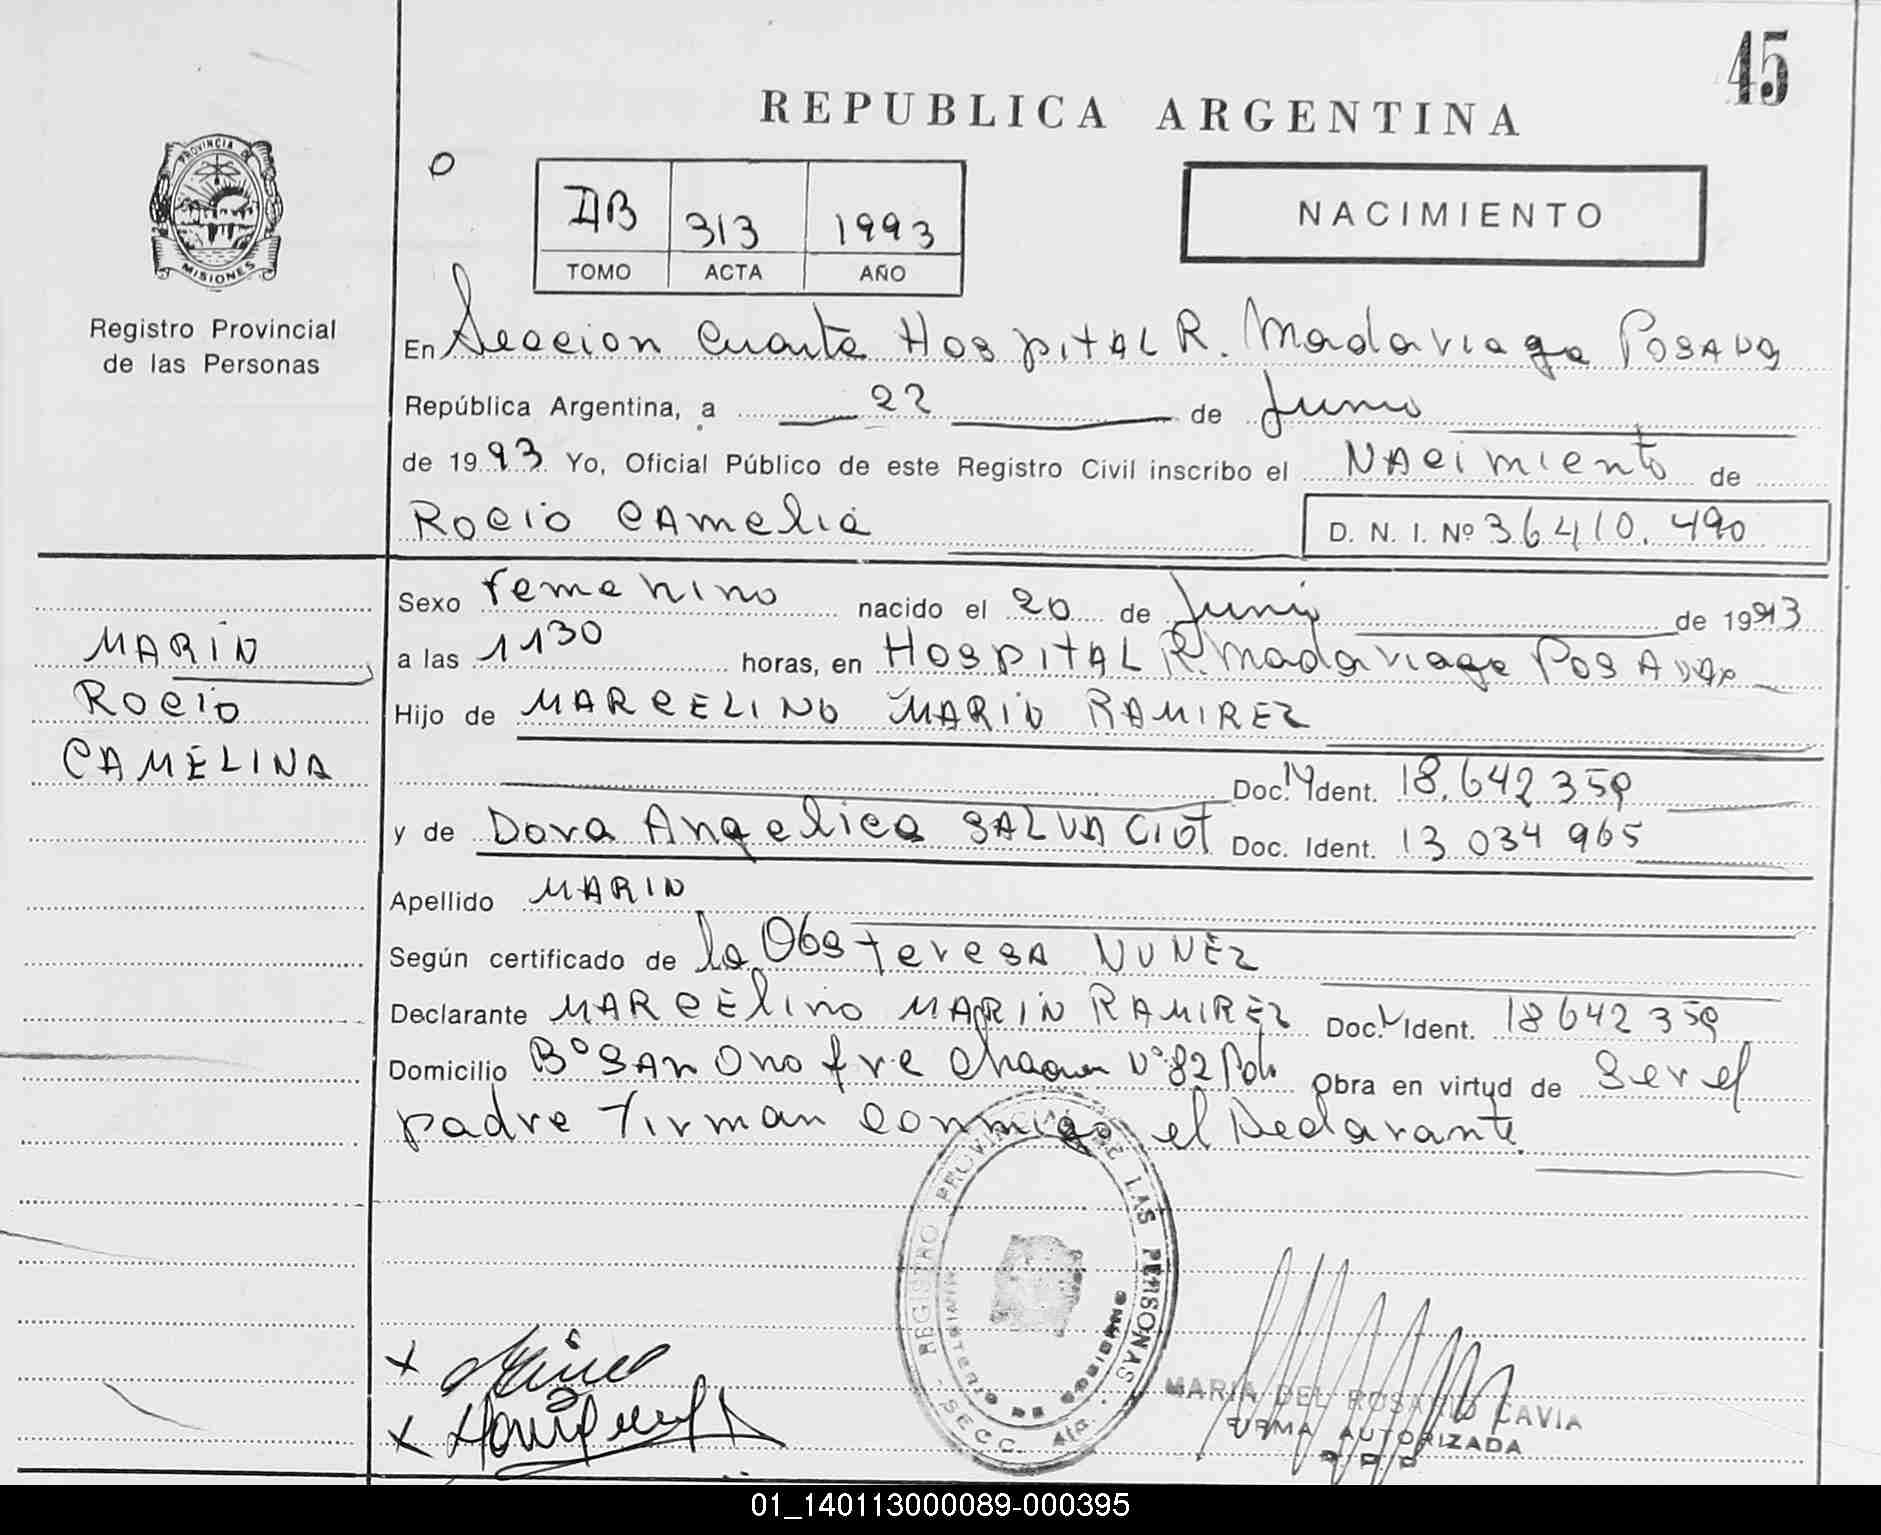 45
REPUBLICA ARGENTINA
PROVINCIA DE
MISIONES
Registro Provincial
de las Personas
313 1993
TOMO ACTA AÑO
NACIMIENTO
En Seccion Cuarta Hospital R. Madariaga Posadas
República Argentina, a 22 de Junio
de 1993 Yo, Oficial Público de este Registro Civil inscribo el Nacimiento de
Rocio Camelia
D. N. I. Nº 36410.490
MARIN
ROCIO
CAMELINA
Sexo Femenino nacido el 20 de Junio de 1993
a las 1130 horas, en Hospital R. Madariaga Posadas
Hijo de MARCELINO MARIN RAMIREZ
Doc. Ident. 18.642 359
y de Dora Angelica SALVACIOT Doc. Ident. 13 034 965
Apellido MARIN
Según certificado de la Obst Teresa NUNEZ
Declarante MARCELINO MARIN RAMIREZ Doc. Ident. 18642359
Domicilio Bº San Onofre Chacra Nº 82 Pdas Obra en virtud de Ser el
padre Firman conmigo el Declarante.
REGISTRO PROVINCIAL DE LAS PERSONAS
MINISTERIO DE GOBIERNO
SECC. 4ta.
MARIA DEL ROSARIO CAVIA
FIRMA AUTORIZADA
R P P
01_140113000089-000395